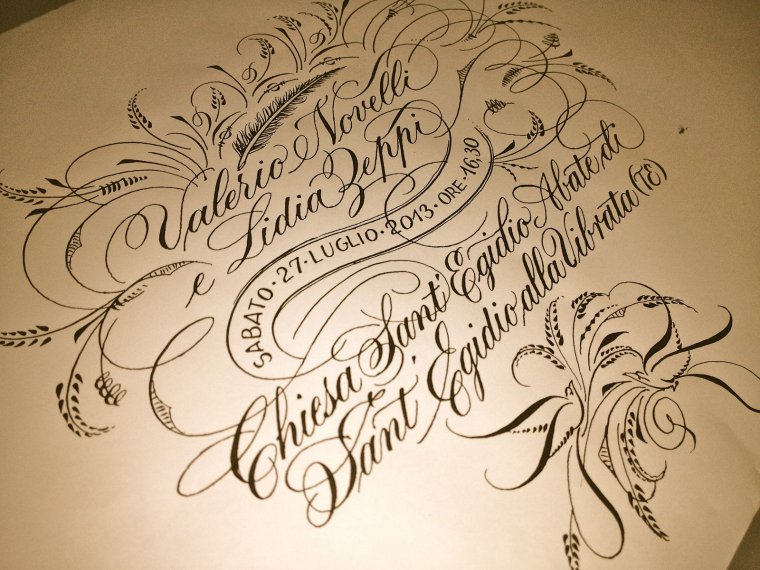 Valerio Novelli
e Lidia Zeppi
SABATO · 27 · LUGLIO · 2013 · ORE · 16,30
Chiesa Sant'Egidio Abate di
Sant'Egidio alla Vibrata (TE)